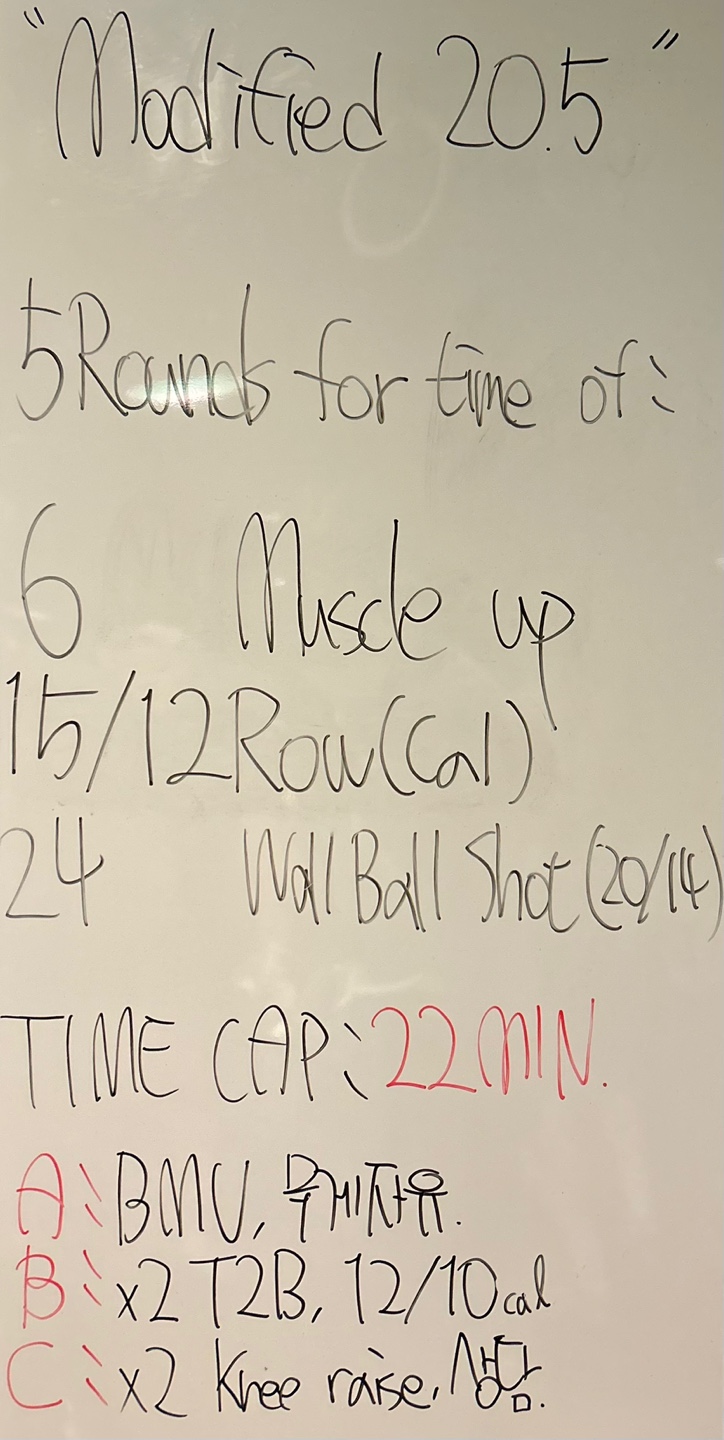 "Modified 20.5"
5 Rounds for time of:
6 Muscle up
15/12 Row(Cal)
24 Wall Ball Shot (20/14)
TIME CAP: 22MIN.
A: BMU, 무게자유.
B: x2 T2B, 12/10cal
C: x2 Knee raise, 상담.